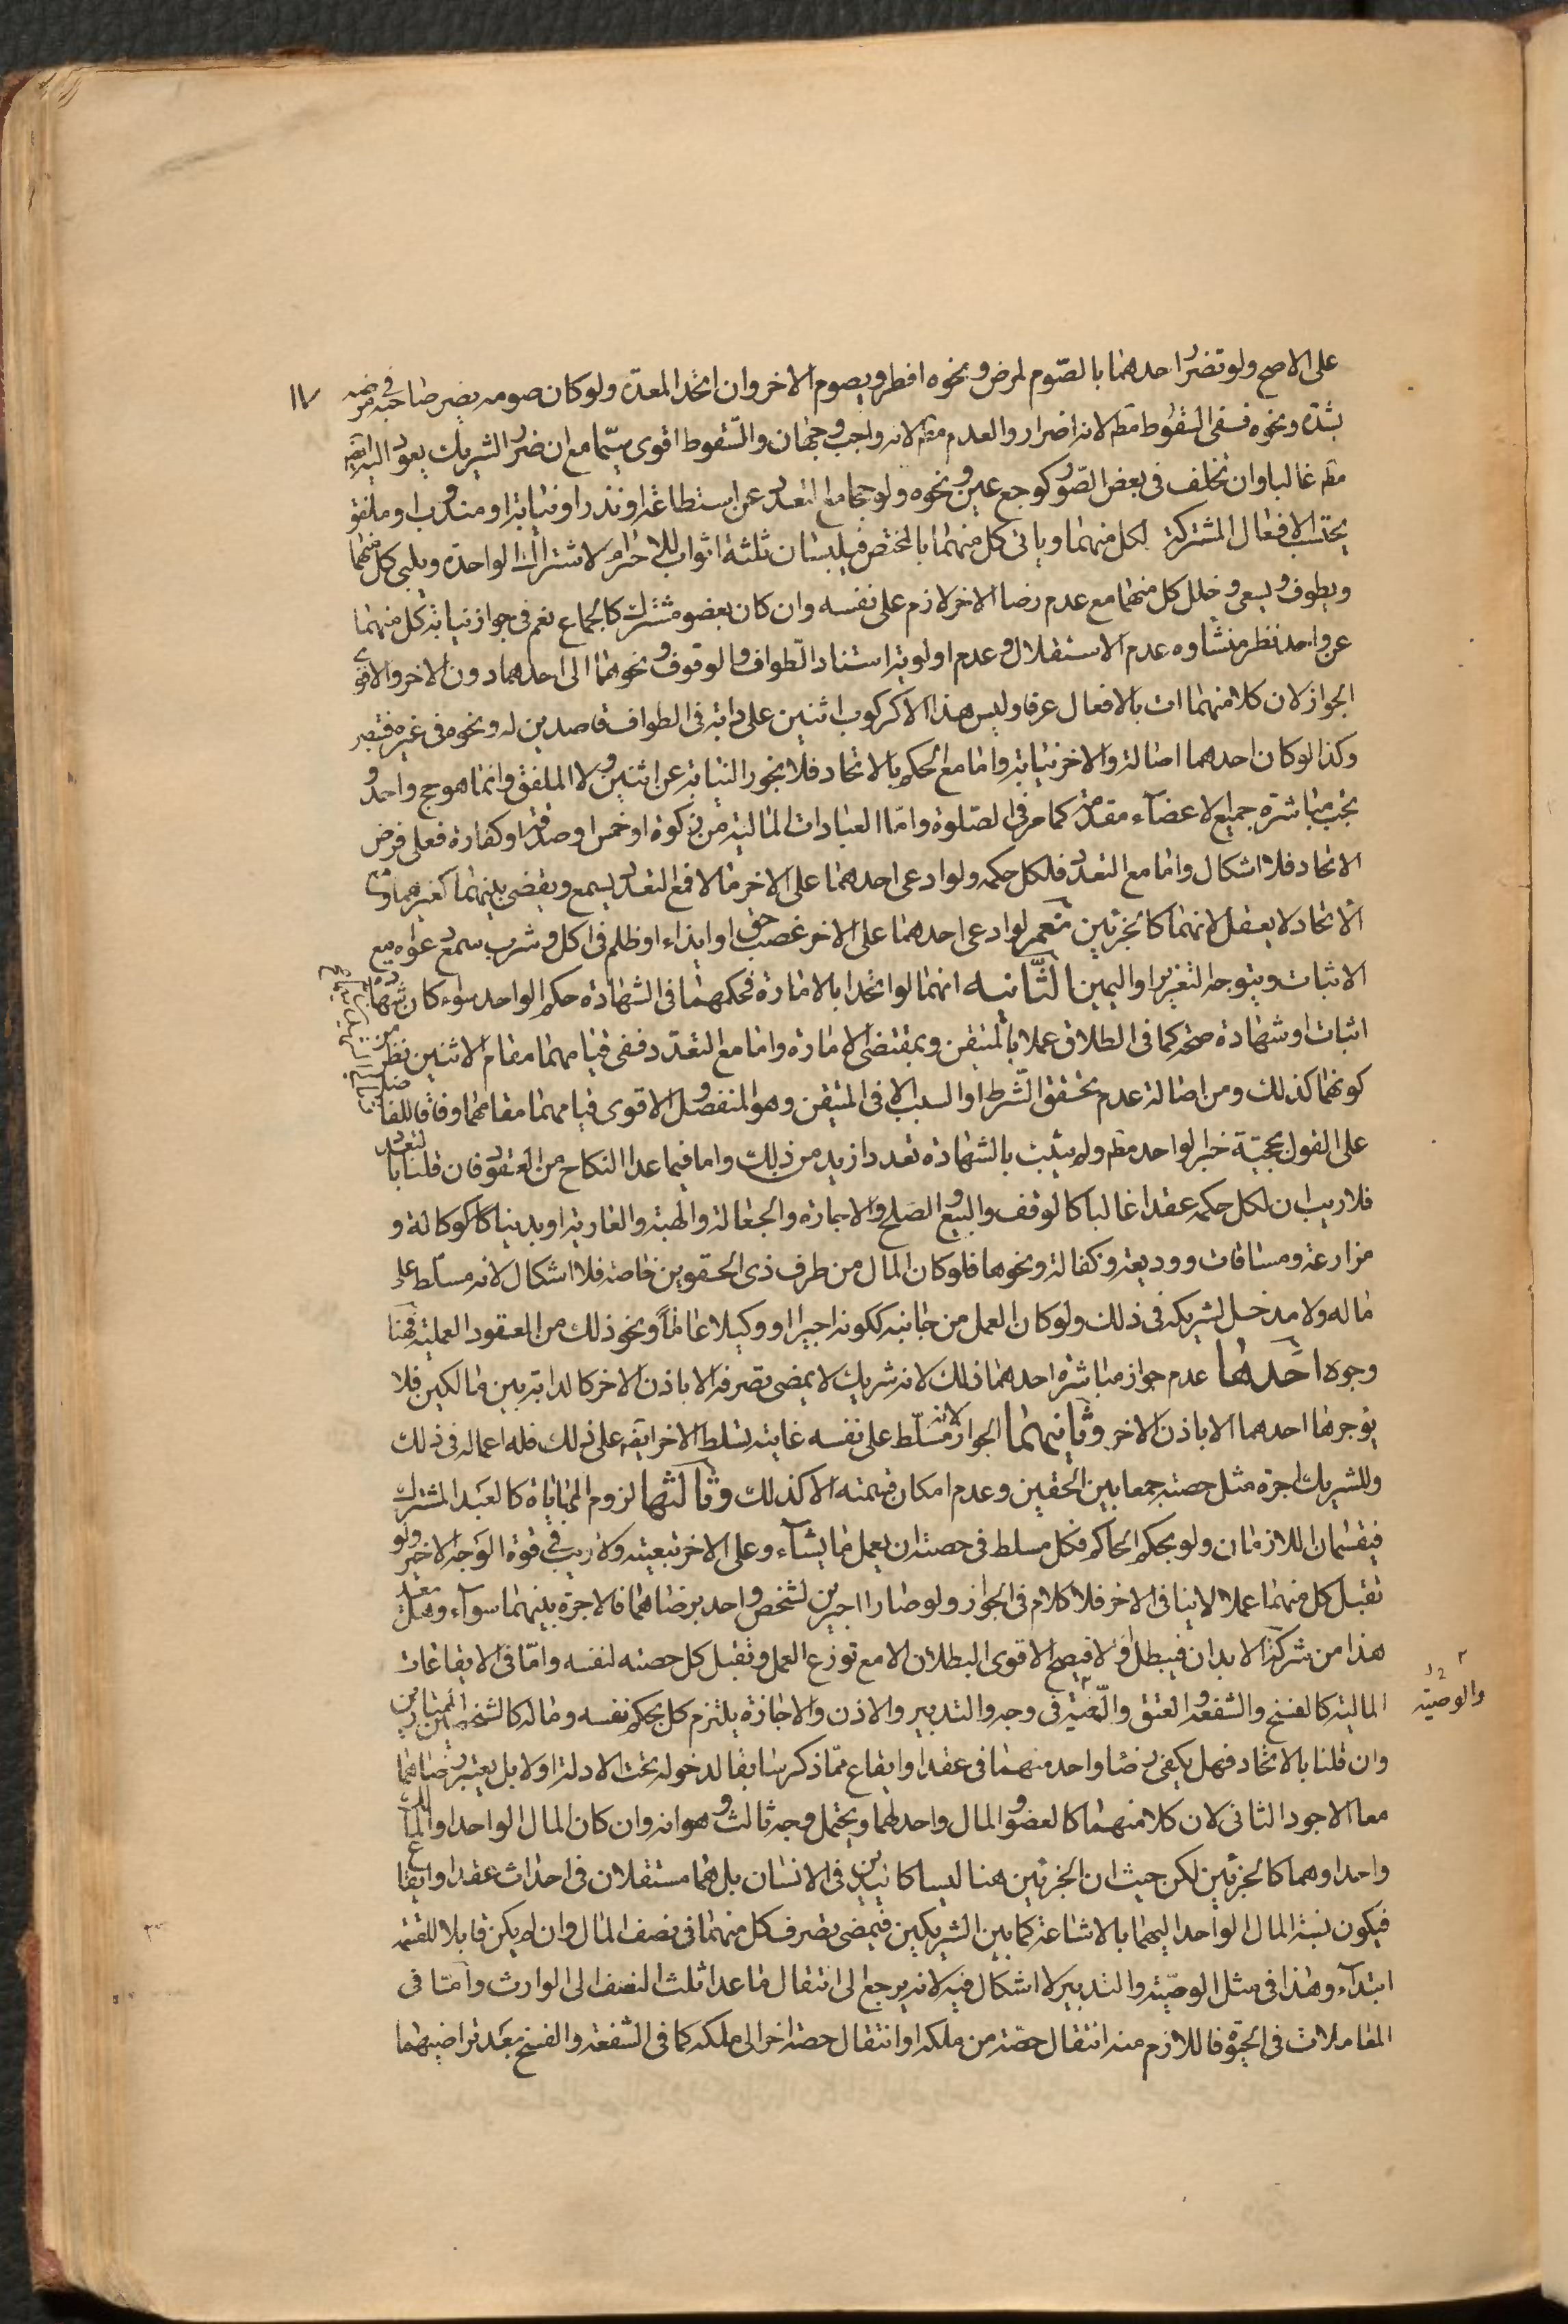 على الاصح ولو تضرر احدهما بالصّوم لمرض ونحوه افطر ويصوم الاخر وان اتحد المعدة ولو كان صومه يضر صاحبه في مرضه
١٧
بشدة ونحوه ففى السّقوط مط لانه اضرار والعدم مط لانه واجب وجهان والسّقوط اقوى سيّما مع ان ضرر الشريك يعود اليه ايضه
مط غالبا وان تخلف فى بعض الصّور كوجع عين ونحوه ولو حجا مع التعدد عن استطاعة او نذر او نيابة او مندوب او ملفق
يحتسب الافعال المشتركة لكل منهما وياتى كل منهما بالمختص فيلبسان ثلثة اثواب للاحرام لاشتراك الواحدة ويلبى كل منهما
ويطوف ويسعى وخلل كل منهما مع عدم رضا الاخر لازم على نفسه وان كان بعضو مشترك كالجماع نعم فى جواز نيابة كل منهما
عن واحد نظر منشاوه عدم الاستقلال وعدم اولوية استناد الطواف والوقوف ونحوهما الى احدهما دون الاخر والاقوى
الجواز لان كلا منهما ات بالافعال عرفا وليس هذا الا كركوب اثنين على دابة فى الطواف قاصدين له ونحوه فى غيره فتبصر
وكذا لو كان احدهما اصالة والاخر نيابة واما مع الحكم بالاتحاد فلا يجوز النيابة عن اثنين ولا الملفق وانما هو حج واحد و
يجب مباشرة جميع الاعضاء مقدمة كما مر فى الصّلوة وامّا العبادات المالية من زكوة او خمس او صدقة او كفارة فعلى فرض
الاتحاد فلا اشكال واما مع التعدد فلكل حكمه ولو ادعى احدهما على الاخر مالا فمع التعدد يسمع ويقضى بينهما كغيرهما ومع
الاتحاد لا يعقل لانهما كالجزئين نعم لو ادعى احدهما على الاخر غصب حق او ايذاء او ظلم فى اكل وشرب سمع دعواه مع
الاثبات ويتوجه التعزير او اليمين الثّانيه انهما لو اتحدا بالامارة فحكمهما فى الشهادة حكم الواحد سواء كان شهادة
اثبات او شهادة صحة كما فى الطلاق عملا بالمتيقن وبمقتضى الامارة واما مع التعدد ففى قيامهما مقام الاثنين نظر من
كونهما كذلك ومن اصالة عدم تحقق الشّرط او السبب الا فى المتيقن وهو المنفصل والاقوى قيامهما مقامهما وفاقا للفاضل
على القول بحجية خبر الواحد مط ولم يثبت بالشهادة تعدد ازيد من ذلك واما فيما عدا النكاح من العقود فان قلنا بالتعدد
فلا ريب ان لكل حكمه عقدا غاليا كالوقف والبيع والصلح والاجارة والجعالة والهبة والعارية او بدنيا كالوكالة و
مزارعة ومساقات ووديعة وكفالة ونحوها فلو كان المال من طرف ذى الحقوين خاصة فلا اشكال لانه مسلّط على
ماله ولا مدخل لشريكه فى ذلك ولو كان العمل من جانبه ككونه اجيرا او وكيلا عاملاً ونحو ذلك من العقود العملية فهنا
وجوه احدها عدم جواز مباشرة احدهما ذلك لانه شريك لا يمضى تصرفه الا باذن الاخر كالدابة بين مالكين فلا
يوجرها احدهما الا باذن الاخر وثانيهما الجواز لانه مسّلّط على نفسه غايته تسلط الاخر ايضه على ذلك فله اعماله فى ذلك
وللشريك اجرة مثل حصته جمعا بين الحقين وعدم امكان قسمته الا كذلك وثالثها لزوم المهاياة كالعبد المشترك
فيقسمان اللازمان ولو بحكم الحاكم فكل مسلط فى حصته ان يعمل ما يشاء وعلى الاخر تبعيته ولا ريب فى قوة الوجه الاخير ولو
تقبل كل منهما عملا لا ينافى الاخر فلا كلام فى الجواز ولو صارا اجيرين لشخص واحد برضاهما فالاجرة بينهما سواء وهل يعد
هذا من شركة الابدان فيبطل او لا فيصح الاقوى البطلان الا مع توزع العمل وتقبل كل حصته لنفسه وامّا فى الايقاعات
المالية كالفسخ والشفعة والعتق والوصيّة فى وجه والتدبير والاذن والاجازة يلتزم كل بحكم نفسه وماله كالشخصين المتباينين
والوصية
وان قلنا بالاتحاد فهل يكفى رضا واحد منهما فى عقد او ايقاع ممّا ذكر سابقا لدخوله تحت الادلة اولا بل يعتبر رضاهما
معا الاجود الثانى لان كلا منهما كالعضو والمال واحد لهما ويحتمل وجه ثالث وهو انه وان كان المال الواحد والمالك
واحدا وهما كالجزئين لكن حيث ان الجزئين هنا ليسا كاليدين فى الانسان بل هما مستقلان فى احداث عقد او ايقاع
فيكون نسبة المال الواحد اليهما بالاشاعة كما بين الشريكين فيمضى تصرف كل منهما فى نصف المال وان لم يكن قابلا للقسمة
ابتداء وهذا فى مثل الوصيّة والتدبير لا اشكال فيه لانه يرجع الى انتقال ما عدا ثلث النصف الى الوارث وامّا فى
المعاملات فى الحيوة فاللازم منه انتقال حصّة من ملكه او انتقال حصة اخر الى ملكه كما فى الشفعة والفسخ بعد تراضيهما